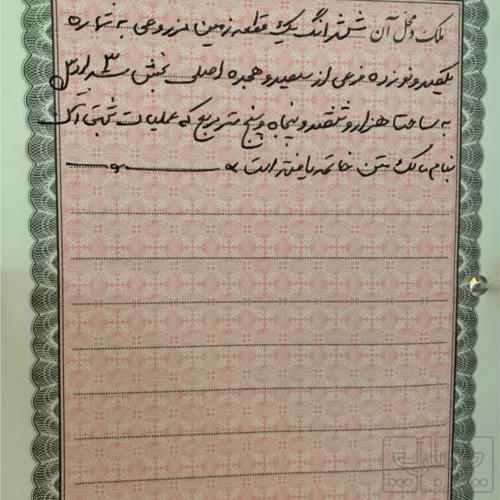 ملک و محل آن ششدانگ یک قطعه زمین مزروعی به شماره
یکصد و نوزده فرعی از سیصد و هجده اصلی بخش ۳
به مساحت هزار و ششصد و پنجاه و پنج متر مربع که عملیات ثبتی آن
بنام مالک متن خاتمه یافته است